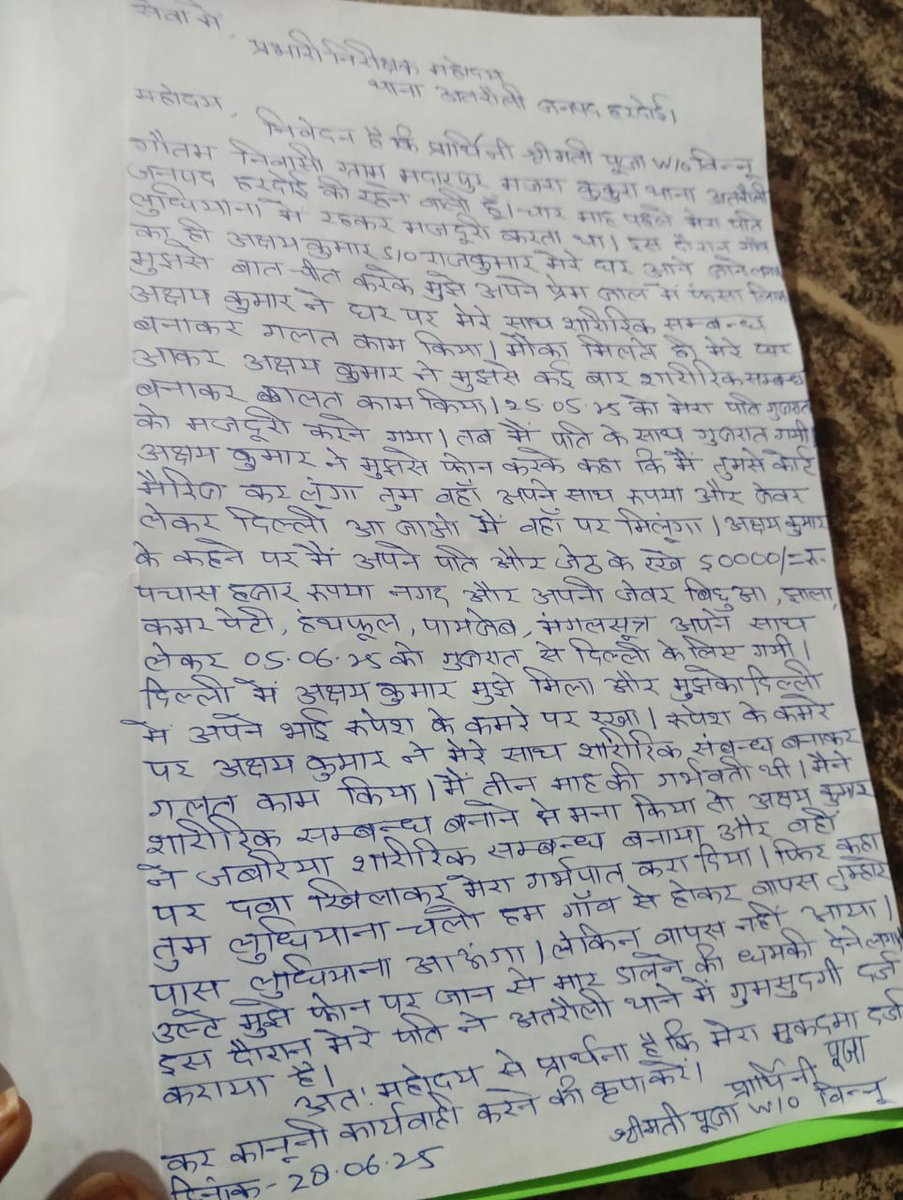 सेवा में,
प्रभारी निरीक्षक महोदय
थाना अतरौली जनपद हरदोई।
महोदय,
निवेदन है कि प्रार्थिनी श्रीमती पूजा W/O विन्नू
गौतम निवासी ग्राम मदारपुर मजरा कुकुरा थाना अतरौली
जनपद हरदोई की रहने वाली है। चार माह पहले मेरा पति
लुधियाना में रहकर मजदूरी करता था। इस दौरान गाँव
का ही अक्षय कुमार S/O राजकुमार मेरे घर आने जाने लगा
मुझसे बात-चीत करके मुझे अपने प्रेम जाल में फंसा लिया
अक्षय कुमार ने घर पर मेरे साथ शारीरिक सम्बन्ध
बनाकर गलत काम किया। मौका मिलते ही मेरे घर
आकर अक्षय कुमार ने मुझसे कई बार शारीरिक सम्बन्ध
बनाकर गलत काम किया। 25.05.25 को मेरा पति गुजरात
को मजदूरी करने गया। तब मैं पति के साथ गुजरात गयी।
अक्षय कुमार ने मुझसे फोन करके कहा कि मैं तुमसे कोर्ट
मैरिज कर लूंगा तुम वहाँ अपने साथ रुपया और जेवर
लेकर दिल्ली आ जाओ मैं वहाँ पर मिलूंगा। अक्षय कुमार
के कहने पर मैं अपने पति और जेठ के रखे 50000/=रु.
पचास हजार रुपया नगद और अपनी जेवर बिछुआ, झाला,
कमर पेटी, हथफूल, पायजेब, मंगलसूत्र अपने साथ
लेकर 05.06.25 को गुजरात से दिल्ली के लिए गयी।
दिल्ली में अक्षय कुमार मुझे मिला और मुझको दिल्ली
में अपने भाई रुपेश के कमरे पर रखा। रुपेश के कमरे
पर अक्षय कुमार ने मेरे साथ शारीरिक संबन्ध बनाकर
गलत काम किया। मैं तीन माह की गर्भवती थी। मैंने
शारीरिक सम्बन्ध बनाने से मना किया तो अक्षय कुमार
ने जबरिया शारीरिक सम्बन्ध बनाया और वहीं
पर दवा खिलाकर मेरा गर्भपात करा दिया। फिर कहा
तुम लुधियाना चलो हम गाँव से होकर वापस तुम्हारे
पास लुधियाना आऊंगा। लेकिन वापस नहीं आया।
उल्टे मुझे फोन पर जान से मार डालने की धमकी देने लगा
इस दौरान मेरे पति ने अतरौली थाने में गुमसुदगी दर्ज
कराया है।
अतः महोदय से प्रार्थना है कि मेरा मुकदमा दर्ज
कर कानूनी कार्यवाही करने की कृपा करें।
प्रार्थिनी पूजा
श्रीमती पूजा W/O विन्नू
दिनांक - 28.06.25